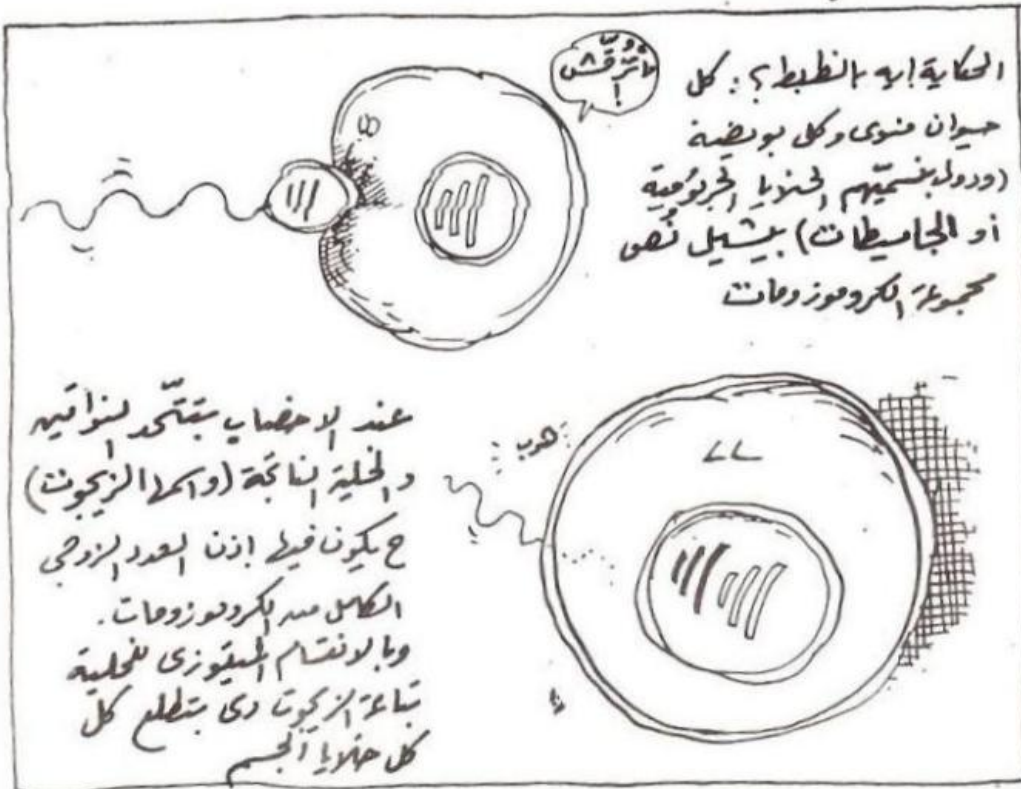 الحكاية إيه بالظبط؟: كل
حيوان منوى وكل بويضة
(ودول بنسميّهم الخلايا الجرثومية
أو الجاميطات) بيشيل نُص
مجموعة الكروموزومات
عند الاخصاب بتتّحد النواتين
والخلية الناتجة (واسمها الزيجوت)
ح يكون فيها إذن العدد الزوجي
الكامل من الكروموزومات.
وبالانقسام الميتوزى للخلية
بتاعة الزيجوت دى بتطلع كل
كل خلايا الجسم
هوب